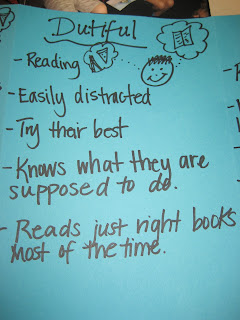 Dutiful
- Reading
- Easily distracted
- Try their best
- Knows what they are
supposed to do.
- Reads just right books
most of the time.